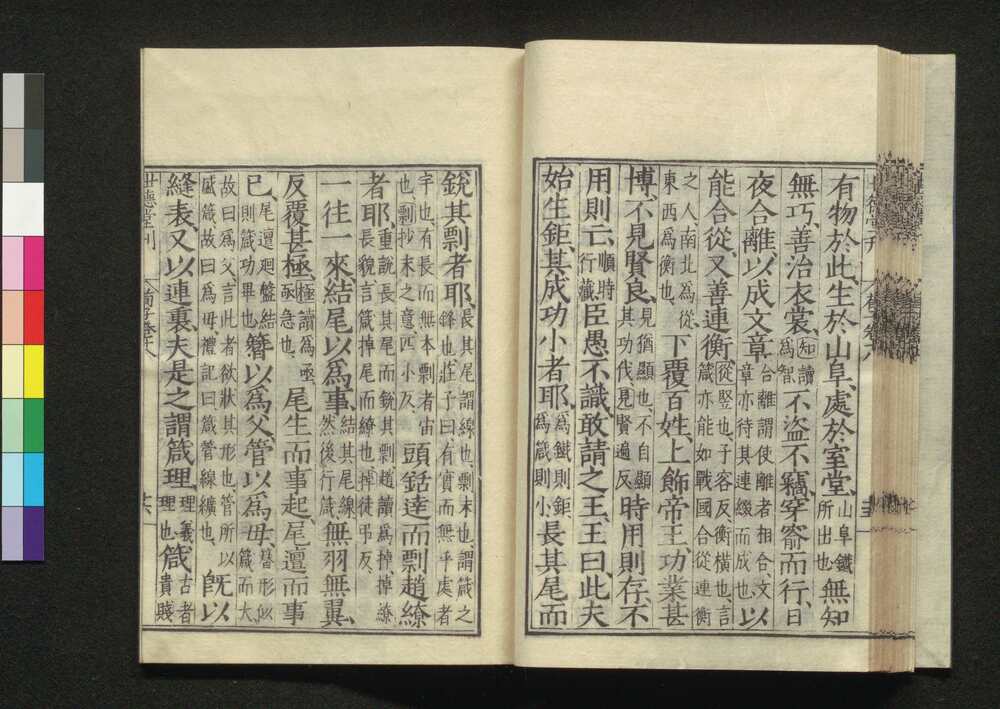 有物於此、生於山阜、處於室堂、山阜鐵所出也無知
無巧、善治衣裳、知讀為智不盜不竊、穿窬而行、日
夜合離、以成文章、合離謂使離者相合文章亦待其連綴而成也以
能合從、又善連衡、從竪也子容反衡橫也言箴亦能如戰國合從連衡
之人南北為從、東西為衡也、下覆百姓、上飾帝王、功業甚
博、不見賢良、見猶顯也、不自顯其功伐見賢遍反時用則存、不
用則亡、順時行藏、臣愚不識、敢請之王、王曰、此夫
始生鉅、其成功小者耶、為鐵則鉅為箴則小長其尾而
銳其剽者耶、長其尾謂線也、剽末也、謂箴之鋒也、莊子曰、有實而無乎處者
宇也、有長而無本剽者宙也、剽抄末之意匹小反、頭銛達而剽趙繚
者耶、重說長其尾而銳其剽、趙讀為掉掉繚長貌言箴掉尾而繚也掉徒弔反、
一往一來、結尾以為事、結其尾線然後行箴無羽無翼、
反覆甚極、極讀為亟、亟急也、尾生而事起、尾邅而事
已、尾邅迴盤結則箴功畢也、簪以為父、管以為母、簪形似箴而大、
故曰為父言此者欲狀其形也管所以盛箴故曰為母禮記曰箴管線纊也、既以
縫表、又以連裏、夫是之謂箴理、理義理也箴古者貴賤
世德堂刊
十六